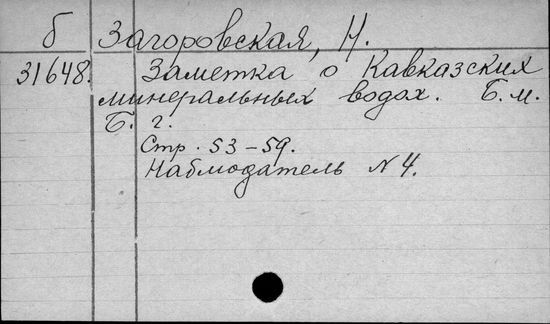 б Загоровская, Н.
31648. Заметка о Кавказских
минеральных водах. Б.м.
Б. г.
Стр. 53-59.
Наблюдатель N 4.